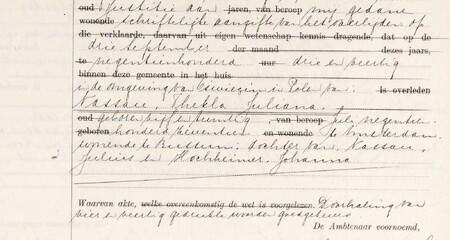 oud justitie aan jaren, van beroep mij gedane
wonende schriftelijke aangifte van het overlijden op
die verklaarde, daarvan uit eigen wetenschap kennis dragende, dat op de
drie september der maand dezes jaars,
te negentienhonderd uur drie en veertig
binnen deze gemeente in het huis
in de omgeving van Oswiecim in Polen van: is overleden
Nassau, Thekla Juliana.
oud geboren vijf en twintig, van beroep juli negentien-
geboren honderd en wonende te Amsterdam.
wonende te Bussum. Dochter van Nassau,
Julius en Hochheimer, Johanna
Waarvan akte, welke overeenkomstig de wet is voorgelezen. Doorhaling van
vier en veertig gedrukte woorden goedgekeurd.
De Ambtenaar voornoemd,